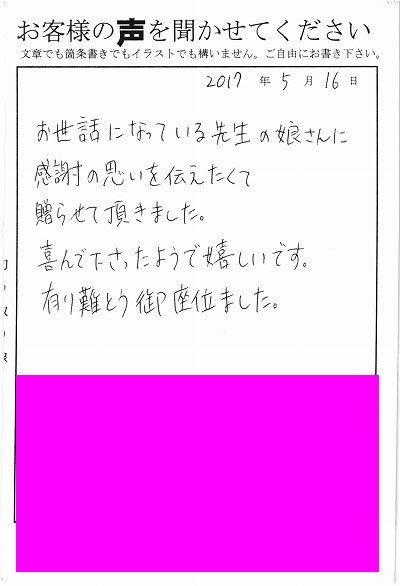 お客様の声を聞かせてください
文章でも箇条書きでもイラストでも構いません。ご自由にお書き下さい。
2017 年 5 月 16 日
お世話になっている先生の娘さんに
感謝の思いを伝えたくて
贈らせて頂きました。
喜んで下さったようで嬉しいです。
有り難とう御座位ました。